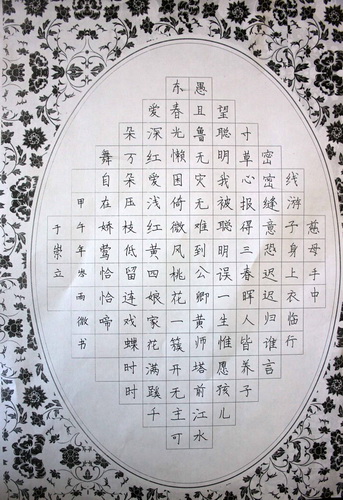 慈母手中
线游子身上衣临行
密密缝意恐迟迟归谁言
寸草心报得三春晖人皆养子
望聪明我被聪明误一生惟愿孩儿
愚且鲁无灾无难到公卿黄师塔前江水
东春光懒困倚微风桃花一簇开无主可
爱深红爱浅红黄四娘家花满蹊千
朵万朵压枝低留连戏蝶时时
舞自在娇莺恰恰啼
甲午年雨微书
于崇立